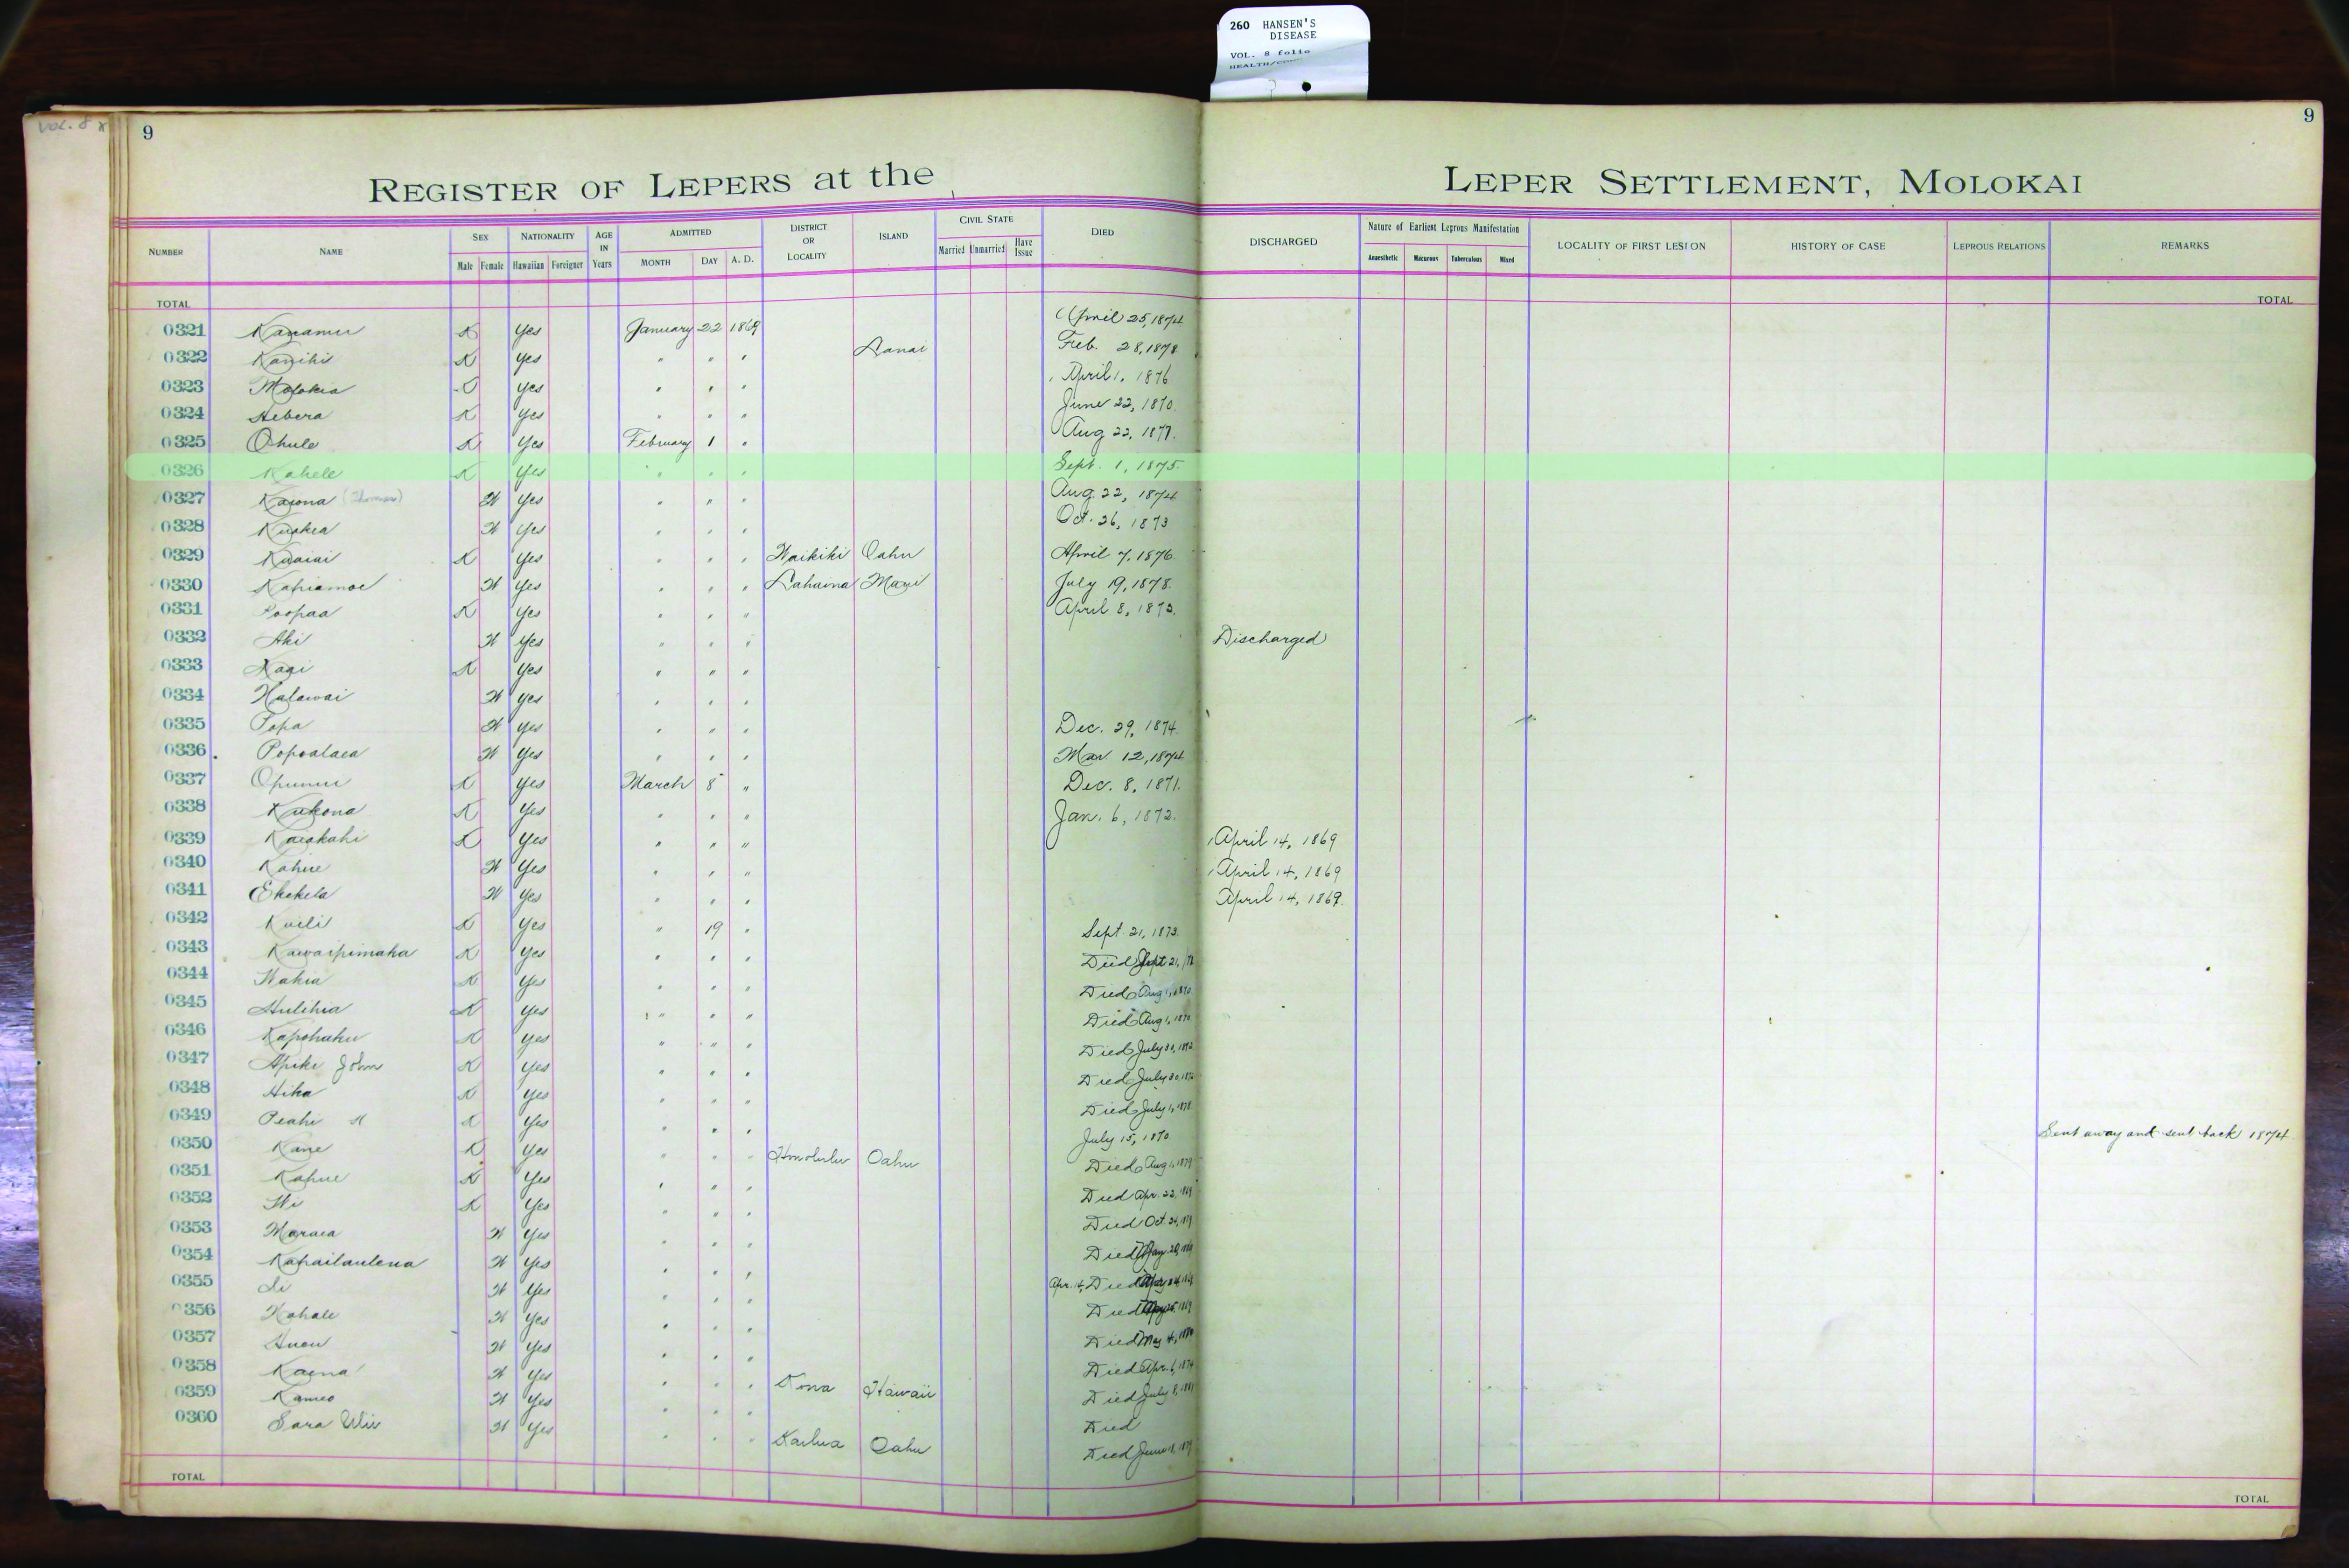 260 HANSEN'S
DISEASE
VOL. 8 folio
VOL. 8
9 9
REGISTER OF LEPERS at the LEPER SETTLEMENT, MOLOKAI
NUMBER NAME SEX Male Female NATIONALITY Hawaiian Foreigner AGE IN Years ADMITTED MONTH DAY A. D. DISTRICT OR LOCALITY ISLAND CIVIL STATE Married Unmarried Have Issue DIED DISCHARGED Nature of Earliest Leprous Manifestation Anaesthetic Macurous Tuberculous Mixed LOCALITY OF FIRST LESION HISTORY OF CASE LEPROUS RELATIONS REMARKS
TOTAL TOTAL
0321 Kanamu K Yes January 22 1869 April 25, 1874
0322 Kanihi K Yes " " " Lanai Feb. 28, 1878
0323 Molokia Yes " " " April 1, 1876
0324 Hebera K Yes " " " June 22, 1870
0325 Ohule K Yes February 1 " Aug 22, 1877.
0326 Kahele K Yes " " " Sept. 1, 1875.
0327 Kaiona (Thomas) W Yes " " " Aug. 22, 1874
0328 W Yes " " " Oct. 26, 1873
0329 Kuaiai K Yes " " " Waikiki Oahu April 7, 1876.
0330 Kapiamoe W Yes " " " Lahaina Maui July 19, 1878.
0331 Poopaa K Yes " " " April 8, 1873.
0332 Aki W Yes " " " Discharged
0333 K Yes " " "
0334 Halawai W Yes " " "
0335 Popa W Yes " " " Dec. 29, 1874.
0336 Popoalaea W Yes " " " Mar. 12, 1874
0337 Opunui K Yes March 8 " Dec. 8, 1871.
0338 Kukona K Yes " " " Jan. 6, 1872.
0339 Kaiakahi K Yes " " " April 14, 1869
0340 Kahue W Yes " " " April 14, 1869
0341 Ekekela W Yes " " " April 14, 1869.
0342 Kuili K Yes " 19 " Sept. 21, 1873.
0343 Kawaipimaka K Yes " " " Died Sept 21,
0344 Wahia K Yes " " " Died Aug 1, 1870
0345 Hulihia K Yes " " " Died Aug 1, 1870
0346 Kapohaku K Yes " " " Died July 30, 1872
0347 Apiki John K Yes " " " Died July 30, 1872
0348 Hika K Yes " " " Died July 1, 1878
0349 Peahi K Yes " " " July 15, 1870 Sent away and sent back 1874.
0350 Kane K Yes " " " Honolulu Oahu Died Aug 1, 1879
0351 Kahue K Yes " " " Died Apr. 22, 1869
0352 Wi K Yes " " " Died Oct. 24,
0353 Maraea W Yes " " " Died
0354 Kapailaulena W Yes " " " Apr. 14, Died
0355 Li W Yes " " " Died
0356 Kahale W Yes " " " Died May 4,
0357 W Yes " " " Died Apr. 6, 1874
0358 Kaena W Yes " " " Kona Hawaii Died July 8, 1881
0359 Kameo W Yes " " " Died
0360 Sara Ulii W Yes " " " Kailua Oahu Died June
TOTAL TOTAL